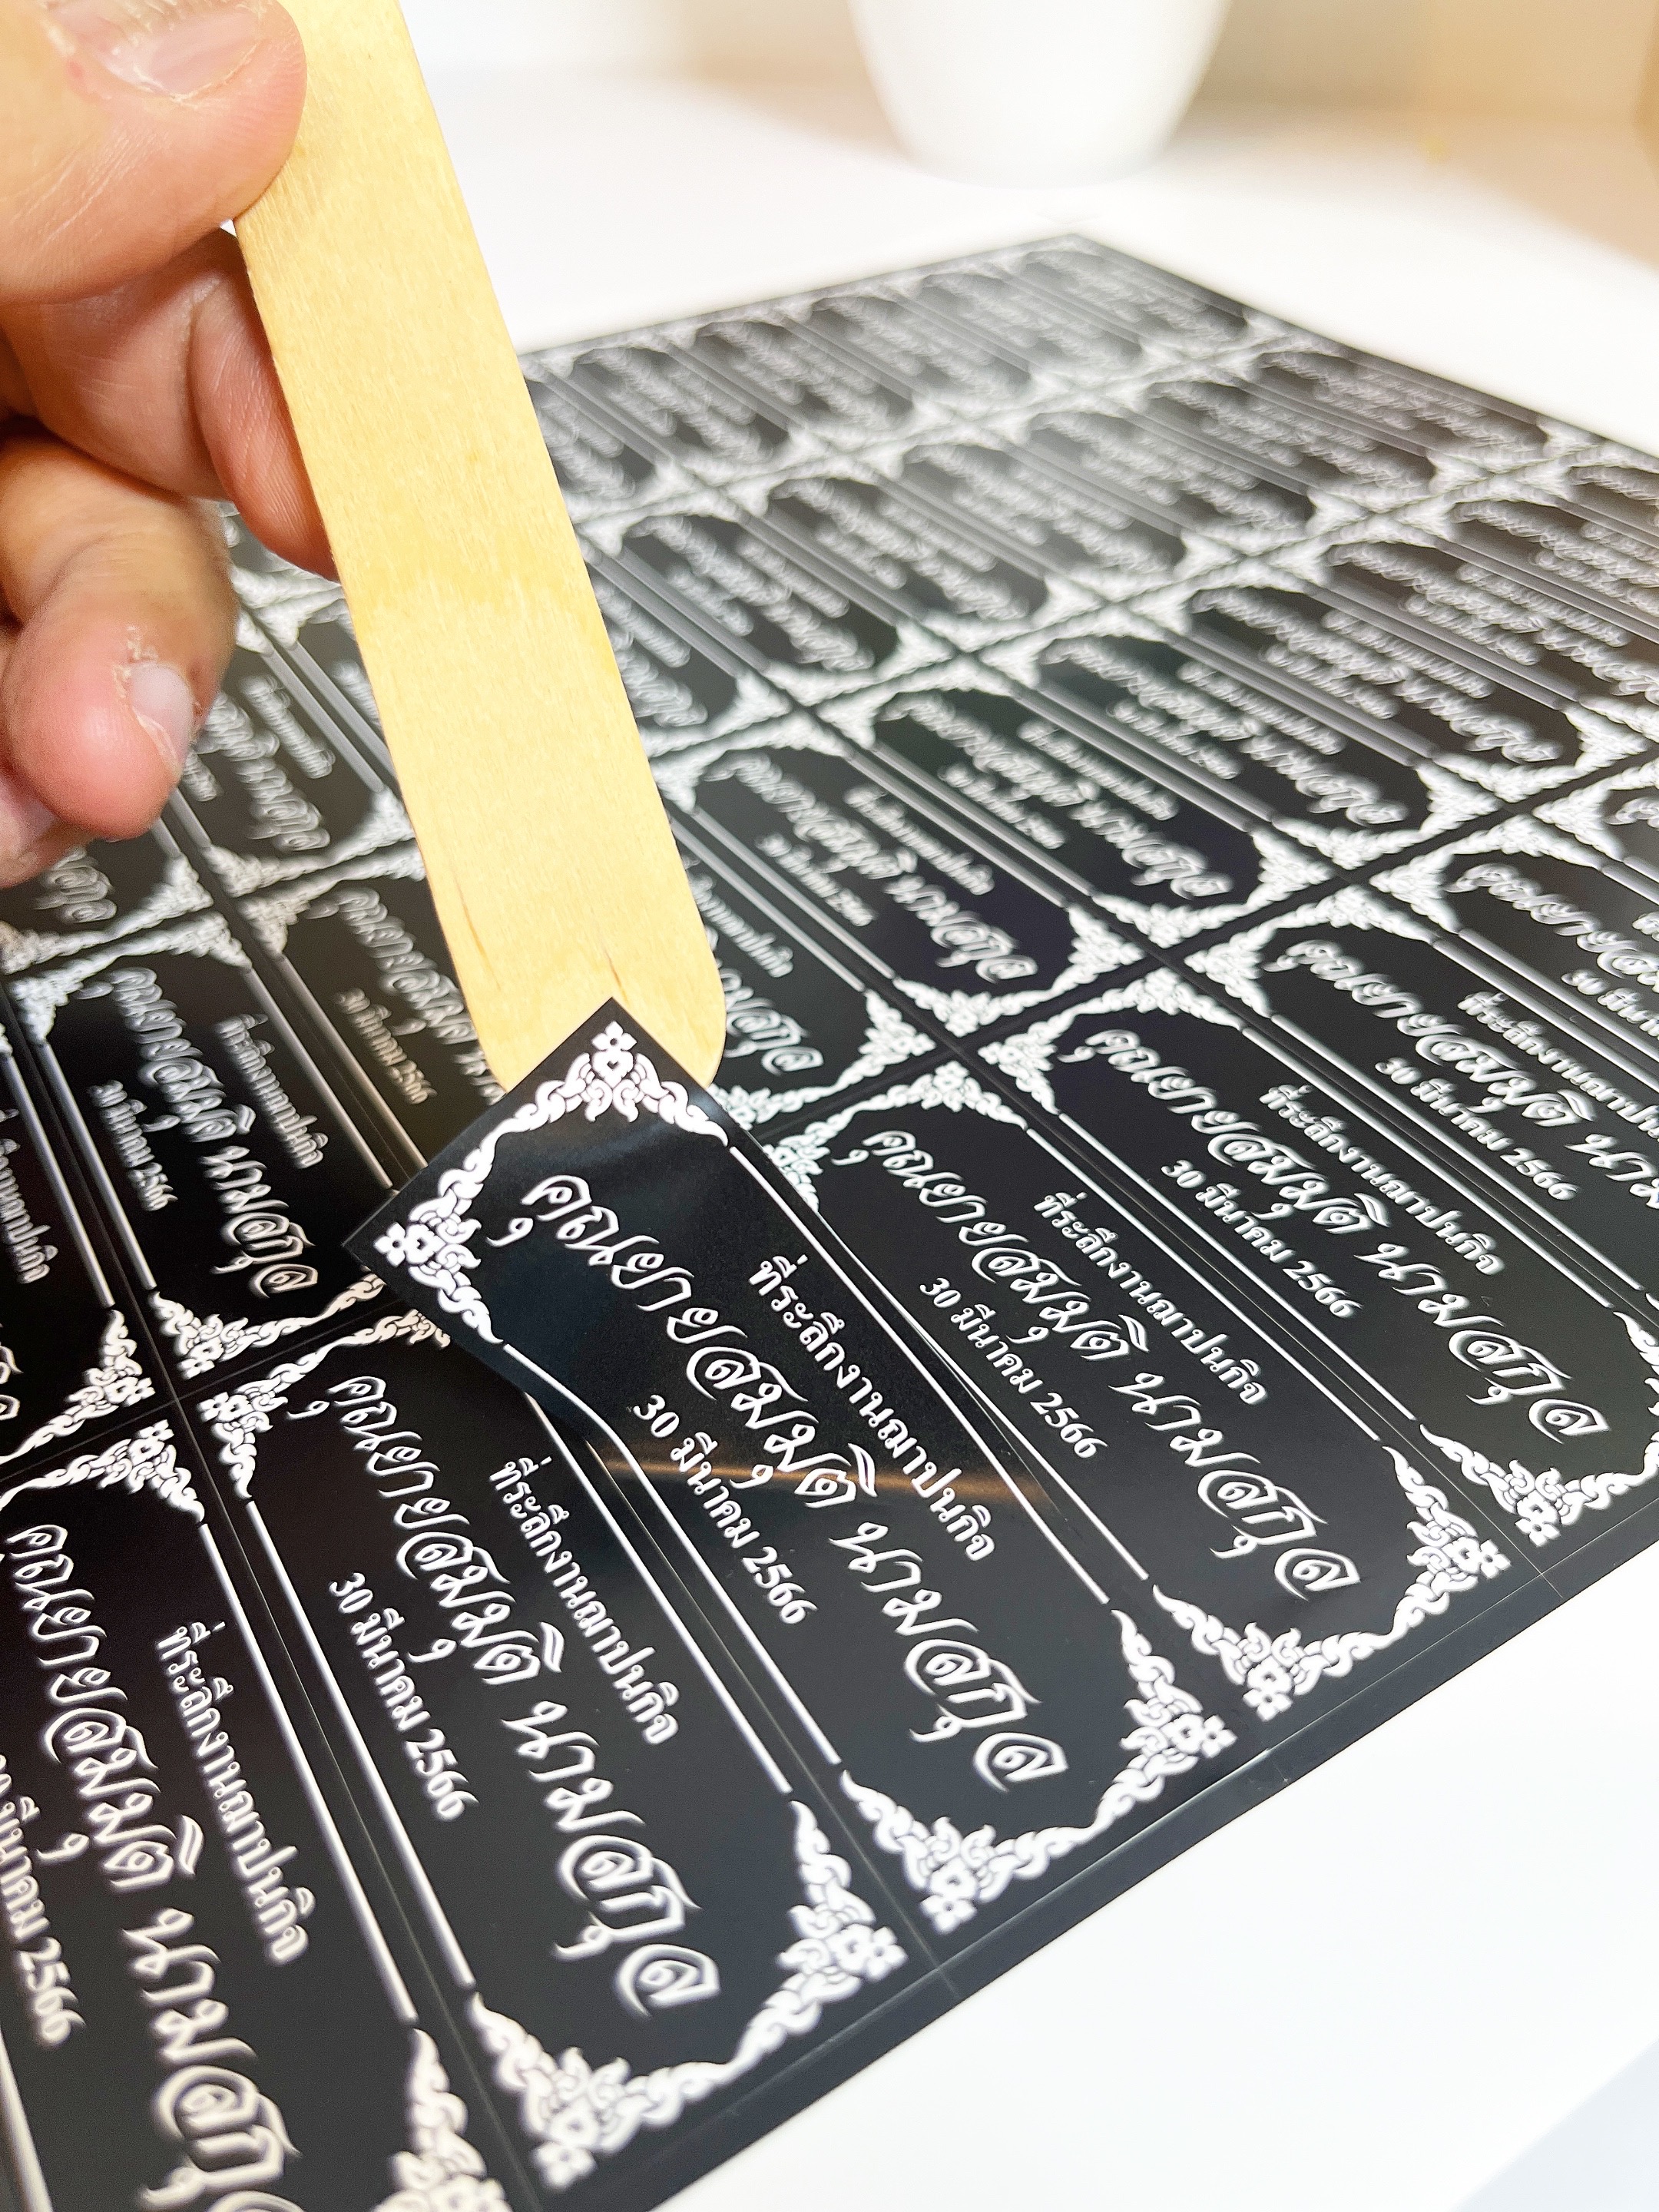 ที่ระลึกงานฌาปนกิจ
คุณยายสมมุติ นามสกุล
30 มีนาคม 2566